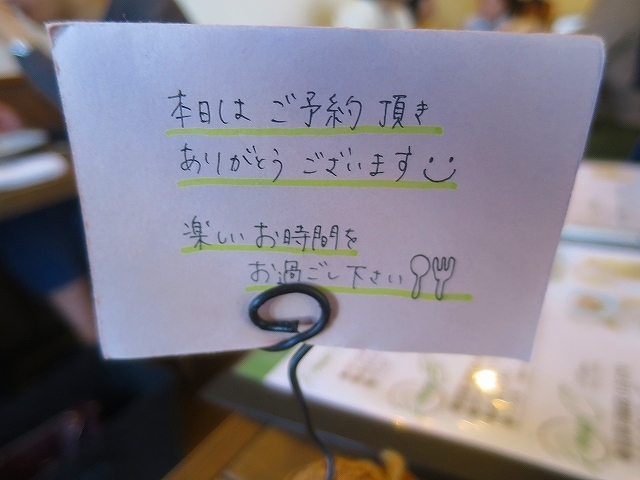 本日は ご予約 頂き
ありがとう ございます
楽しい お時間を
お過ごし下さい